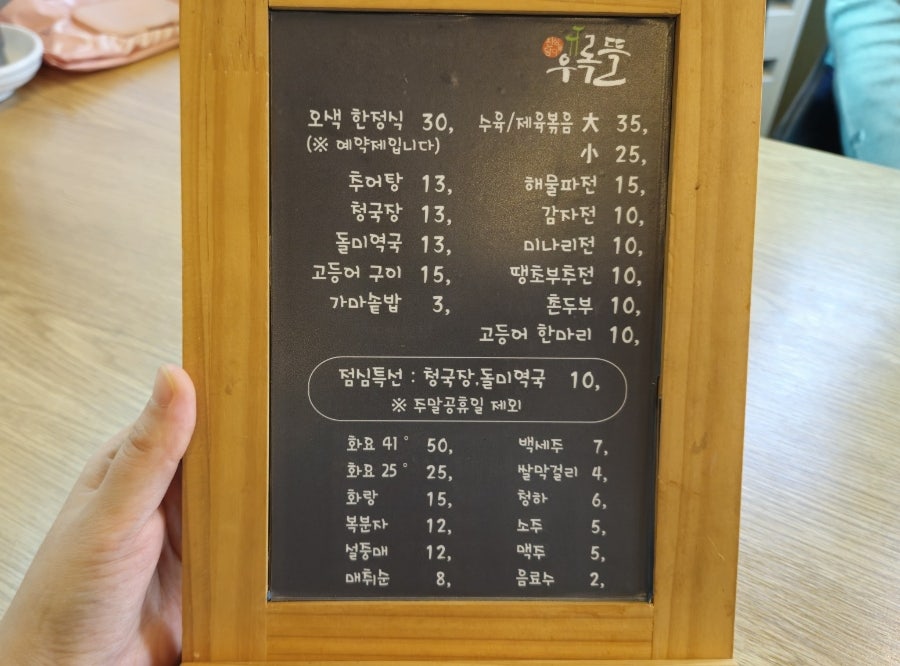 우록뜰
오색 한정식 30,
(※ 예약제입니다)
추어탕 13,
청국장 13,
돌미역국 13,
고등어 구이 15,
가마솥밥 3,
수육/제육볶음 大 35,
小 25,
해물파전 15,
감자전 10,
미나리전 10,
땡초부추전 10,
촌두부 10,
고등어 한마리 10,
점심특선 : 청국장,돌미역국 10,
※ 주말공휴일 제외
화요 41° 50,
화요 25° 25,
화랑 15,
복분자 12,
설중매 12,
매취순 8,
백세주 7,
쌀막걸리 4,
청하 6,
소주 5,
맥주 5,
음료수 2,